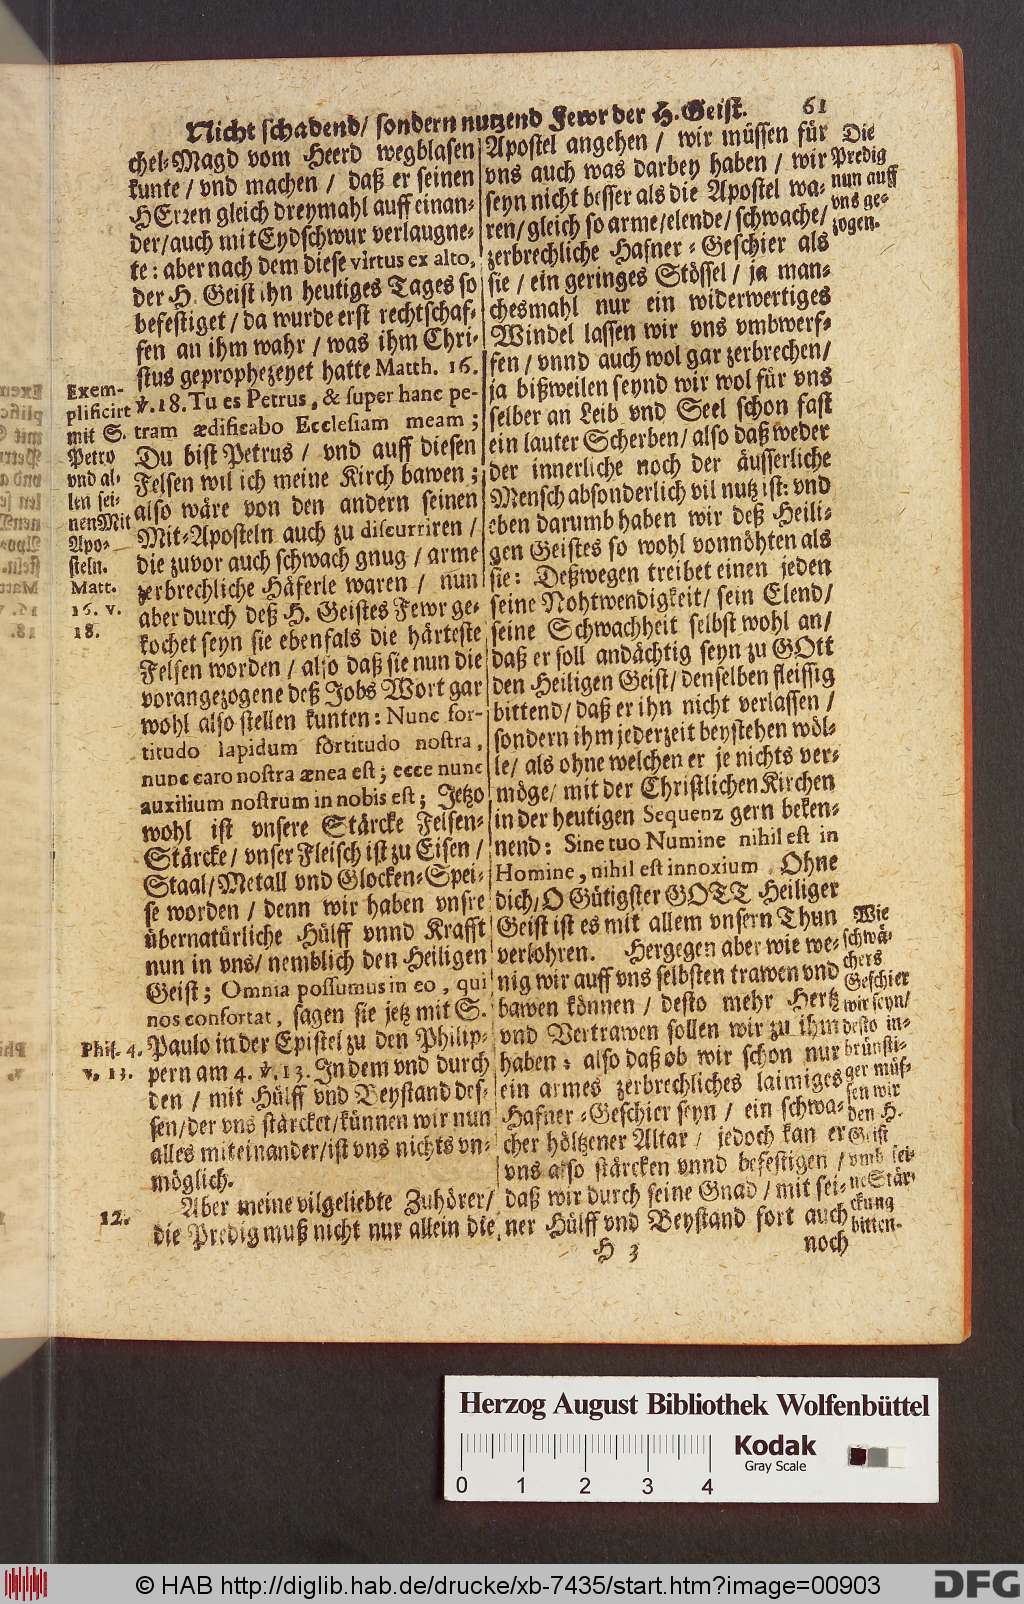 Nicht schadend/ sondern nutzend Fewr der H. Geist.
61
chel-Magd vom Heerd wegblasen
kunte / vnd machen / daß er seinen
HErren gleich dreymahl auff einan-
der/ auch mit Eydschwur verlaugne-
te: aber nach dem diese virtus ex alto,
der H. Geist ihn heutiges Tages so
befestiget / da wurde erst rechtschaf-
fen an ihm wahr / was ihm Chri-
stus geprophezeyet hatte Matth. 16.
v. 18. Tu es Petrus, & super hanc pe-
tram ædificabo Ecclesiam meam;
Du bist Petrus / vnd auff diesen
Felsen wil ich meine Kirch bawen;
also wäre von den andern seinen
Mit-Aposteln auch zu discurriren /
die zuvor auch schwach gnug / arme
zerbrechliche Häferle waren / nun
aber durch deß H. Geistes Fewr ge-
kochet seyn sie ebenfals die härteste
Felsen worden / also daß sie nun die
vorangezogene deß Jobs Wort gar
wohl also stellen kunten: Nunc for-
titudo lapidum fortitudo nostra,
nunc caro nostra ænea est; ecce nunc
auxilium nostrum in nobis est; Jetzo
wohl ist vnsere Stärcke Felsen-
Stärcke/ vnser Fleisch ist zu Eisen /
Staal/ Metall vnd Glocken-Spei-
se worden / denn wir haben vnsre
übernatürliche Hülff vnnd Krafft
nun in vns/ nemblich den Heiligen
Geist; Omnia possumus in eo, qui
nos confortat, sagen sie jetz mit S.
Paulo in der Epistel zu den Philip-
pern am 4. v. 13. In dem vnd durch
den / mit Hülff vnd Beystand des-
sen/ der vns stärcket/ künnen wir nun
alles miteinander/ ist vns nichts vn-
möglich.
Aber meine vilgeliebte Zuhörer/
die Predig muß nicht nur allein die
Exem-
plificirt
mit S.
Petro
vnd al-
len sei-
nen Mit
Apo-
steln.
Matt.
16. v.
18.
Phil. 4.
v. 13.
12.
Apostel angehen / wir müssen für
vns auch was darbey haben / wir
seyn nicht besser als die Apostel wa-
ren/ gleich so arme/ elende/ schwache/
zerbrechliche Hafner-Geschier als
sie / ein geringes Stössel / ja man-
chesmahl nur ein widerwertiges
Windel lassen wir vns vmbwerf-
fen / vnnd auch wol gar zerbrechen/
ja bißweilen seynd wir wol für vns
selber an Leib vnd Seel schon fast
ein lauter Scherben/ also daß weder
der innerliche noch der äusserliche
Mensch absonderlich vil nutz ist: vnd
eben darumb haben wir deß Heili-
gen Geistes so wohl vonnöhten als
sie: Deßwegen treibet einen jeden
seine Nohtwendigkeit/ sein Elend/
seine Schwachheit selbst wohl an/
daß er soll andächtig seyn zu GOtt
den Heiligen Geist/ denselben fleissig
bittend/ daß er ihn nicht verlassen /
sondern ihm jederzeit beystehen wöl-
le/ als ohne welchen er je nichts ver-
möge/ mit der Christlichen Kirchen
in der heutigen Sequenz gern beken-
nend: Sine tuo Numine nihil est in
Homine, nihil est innoxium. Ohne
dich, O Gütigster GOTT Heiliger
Geist ist es mit allem vnsern Thun
verlohren. Hergegen aber wie we-
nig wir auff vns selbsten trawen vnd
bawen können / desto mehr Hertz
vnd Vertrawen sollen wir zu ihm
haben: also daß ob wir schon nur
ein armes zerbrechliches laimiges
Hafner-Geschier seyn / ein schwa-
cher höltzener Altar / jedoch kan er
vns also stärcken vnnd befestigen /
daß wir durch seine Gnad / mit sei-
ner Hülff vnd Beystand fort auch
H 3
noch
Die
Predig
nun auff
vns ge-
zogen.
Wie
schwä-
chers
Geschier
wir seyn/
desto in-
brünsti-
ger müs-
sen wir
den H.
Geist
vmb sei-
ne Stär-
ckung
bitten.
Herzog August Bibliothek Wolfenbüttel
Kodak
Gray Scale
0 1 2 3 4
© HAB http://diglib.hab.de/drucke/xb-7435/start.htm?image=00903
DFG